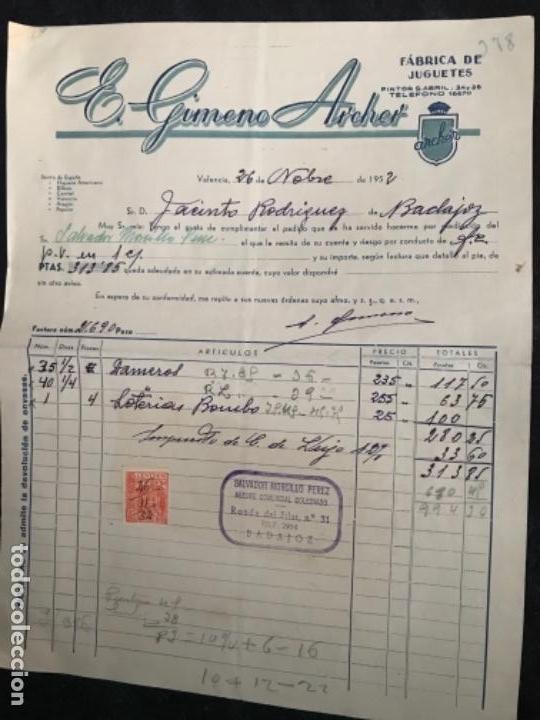 278
E. Gimeno Archer
FÁBRICA DE
JUGUETES
PINTOR G. ABRIL: 34 y 36
TELEFONO 16870
archer
Banco de España
" Hispano Americano
" Bilbao
" Central
" Valencia
" Aragón
" Popular
Valencia, 26 de Nobre de 1952
Sr. D. Jacinto Rodriguez de Badajoz
Muy Sr. mío: Tengo el gusto de cumplimentar el pedido que se ha servido hacerme por mediación del
Sr. Salvador Morillo Perez que le remito de su cuenta y riesgo por conducto de
p.v. en 1 cj. y su importe, según factura que detallo al pie, de
PTAS. 313'85 queda adeudado en su estimada cuenta, cuyo valor dispondré
sin otro aviso.
En espera de su conformidad, me repito a sus nuevas órdenes suyo afmo. y s. s. q. e. s. m.,
Factura núm. 1.690 Peso
Núm. Dnas. Piezas ARTICULOS PRECIO TOTALES
Pesetas Cts. Pesetas Cts.
35 1/2 Dameros 235 117 50
40 1/4 " 255 63 75
1 4 Loterias Bombo 25 100
280 25
Impuesto de C. de Lujo 12% 33 60
313 85
SALVADOR MORCILLO PEREZ
AGENTE COMERCIAL COLEGIADO
Ronda del Pilar, n.º 31
TELF. 2954
BADAJOZ
admite la devolución de envases.
= 10% + 6 - 16
10 + 12 - 22
todocoleccion